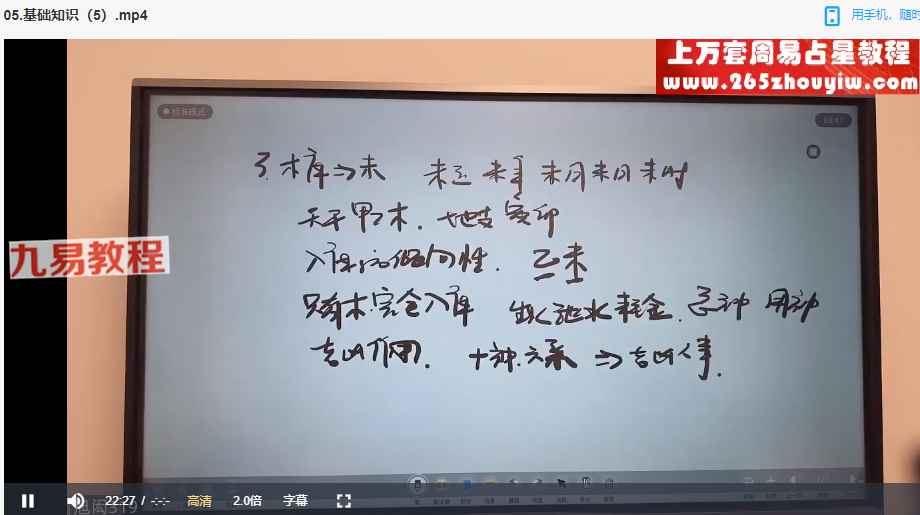 05.基础知识（5）.mp4
用手机、随时
上万套周易占星教程
www.265zhouyiw.com
标准模式
3.木库⇒未 未运 未年 未月未日未时
天干甲乙木.地支寅卯
九易教程
入库的倾向性. 乙未
只有木完全入库 生火泄水耗金. 忌神 用神
吉凶作用. 十神.六亲 ⇒吉凶人事.
22:27 / -:-:- 高清 2.0倍 字幕